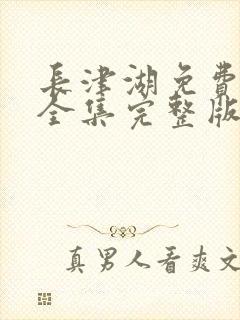 長津湖免費
全集完整版
真男人看爽文